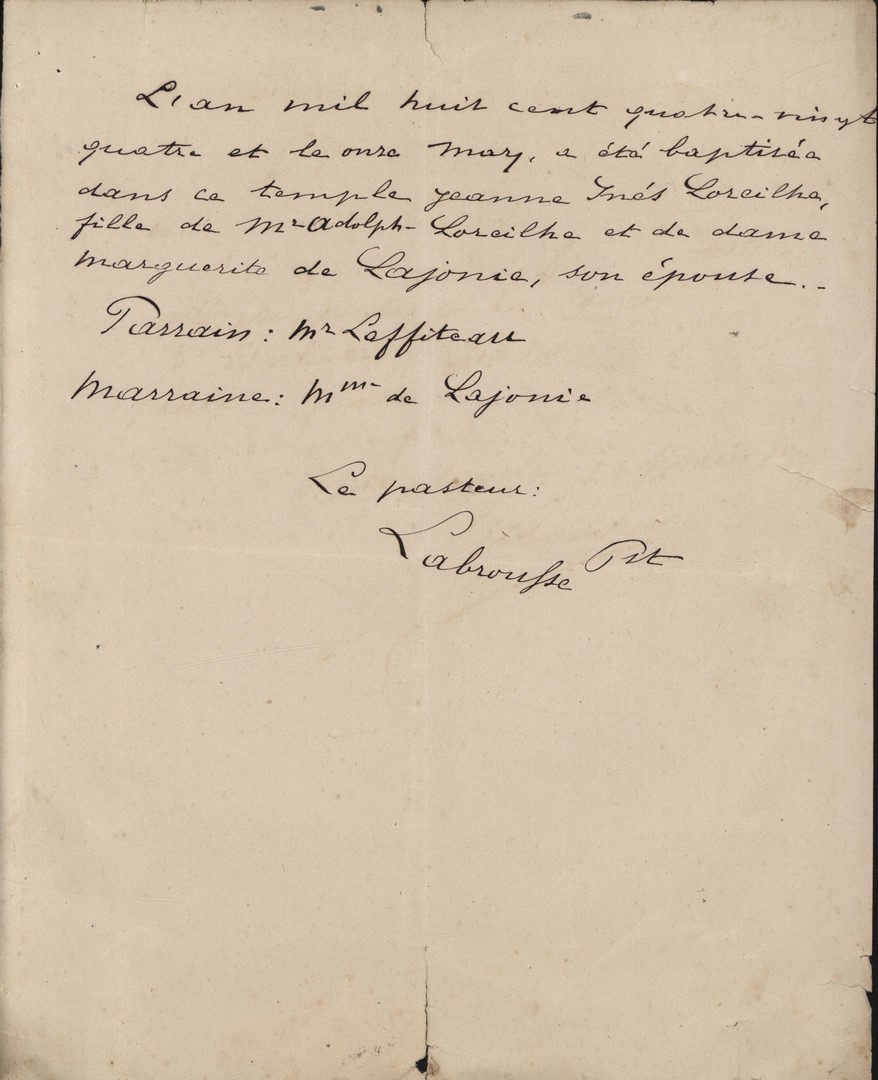 L'an mil huit cent quatre-vingt
quatre et le onze Mars, a été baptisée
dans ce temple Jeanne Inés Loreilhe,
fille de Mr Adolph- Loreilhe et de dame
Marguerite de Lajonie, son épouse..-
Parrain: Mr Laffiteau
Marraine: Mme de Lajonie
Le pasteur:
Labrousse Pst